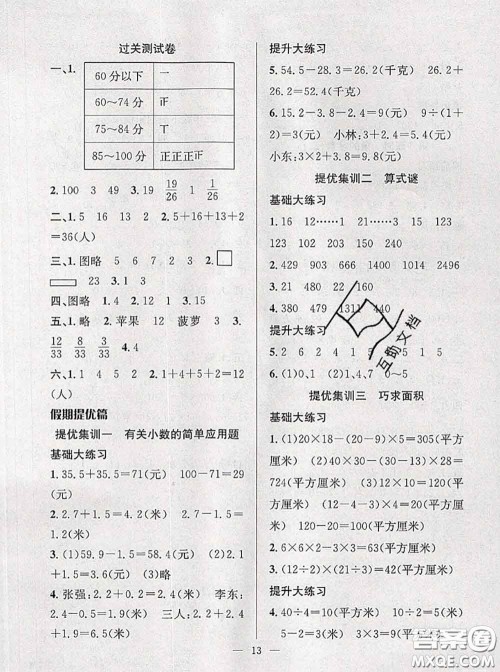 过关测试卷
一、1.
60分以下 一
60～74分 正
75～84分 丅
85～100分 正正正正
2.100 3 49 3. 19/26 1 9/26
二、1.5 16 13 2 2.5＋16＋13＋2
＝36(人)
三、1.图略 5 6 7 2 3 2.
23 3.1 3
四、图略 1.4 2.12 3.5
五、1.略 2.苹果 菠萝 3.
12/33 8/33 5/33 8/33
六、1.5 2.1 3.1＋2＋4＋5＝12(人)
假期提优篇
提优集训一 有关小数的简单应用题
基础大练习
1.35.5＋35.5＝71(元) 100－71＝29
(元)
2.2.7＋1.5＝4.2(米) 2.7＋4.2＝
6.9(米)
3.(1)59.9－1.5＝58.4(元) (2)2.1
＋1.5＝3.6(元)
4.张强：2.2＋2.4＝4.6(米) 李东：
2.4－0.5＝1.9(米) 三人：2.2＋2.4
＋1.9＝6.5(米)
提升大练习
5.54.5－28.3＝26.2(千克) 26.2＋
28.3＝26.2(千克)
6.15.2－3.4－8.9＝2.9(元) 9÷(1＋
2)＝3(元) 小林：3＋1.3＝4.3(元)
小东：3×2＋3.8＝9.8(元)
提优集训二 算式谜
基础大练习
1.16 12……1 21……3 15……3
123 102 249 203
2.429 903 1650 2448 1012
3.480 492 6882 1024 1400
4.380 479 1311 440
提升大练习
5.2 6 2 4 1 5 5 1 5
6.(1)0 (2)1、4、7 0～5
提优集训三 巧求面积
基础大练习
1.(1)20×18－(20－2)×(18－2)＝72
(平方厘米) (2)30×28－2×28－30×
2＋2×2＝728(平方厘米) 30×28－
724(平方厘米) (3)20×10－20×4＝
120(平方厘米) (4)(20－2)×(10－2)
＝144(平方厘米)
(12－4－3)×(12－3)＝
45(平方厘米)
2.6×6×2－3×3＝63(平方厘米)
3.(12－2)×(5－1)＝40(平方米)
提升大练习
4.40÷4＝10(厘米) 15×10＝150(平
方厘米)
5.5－2＝3(厘米) 3×3＝9(平方厘米)
13
互助文档
答案圈
MXQE.COM